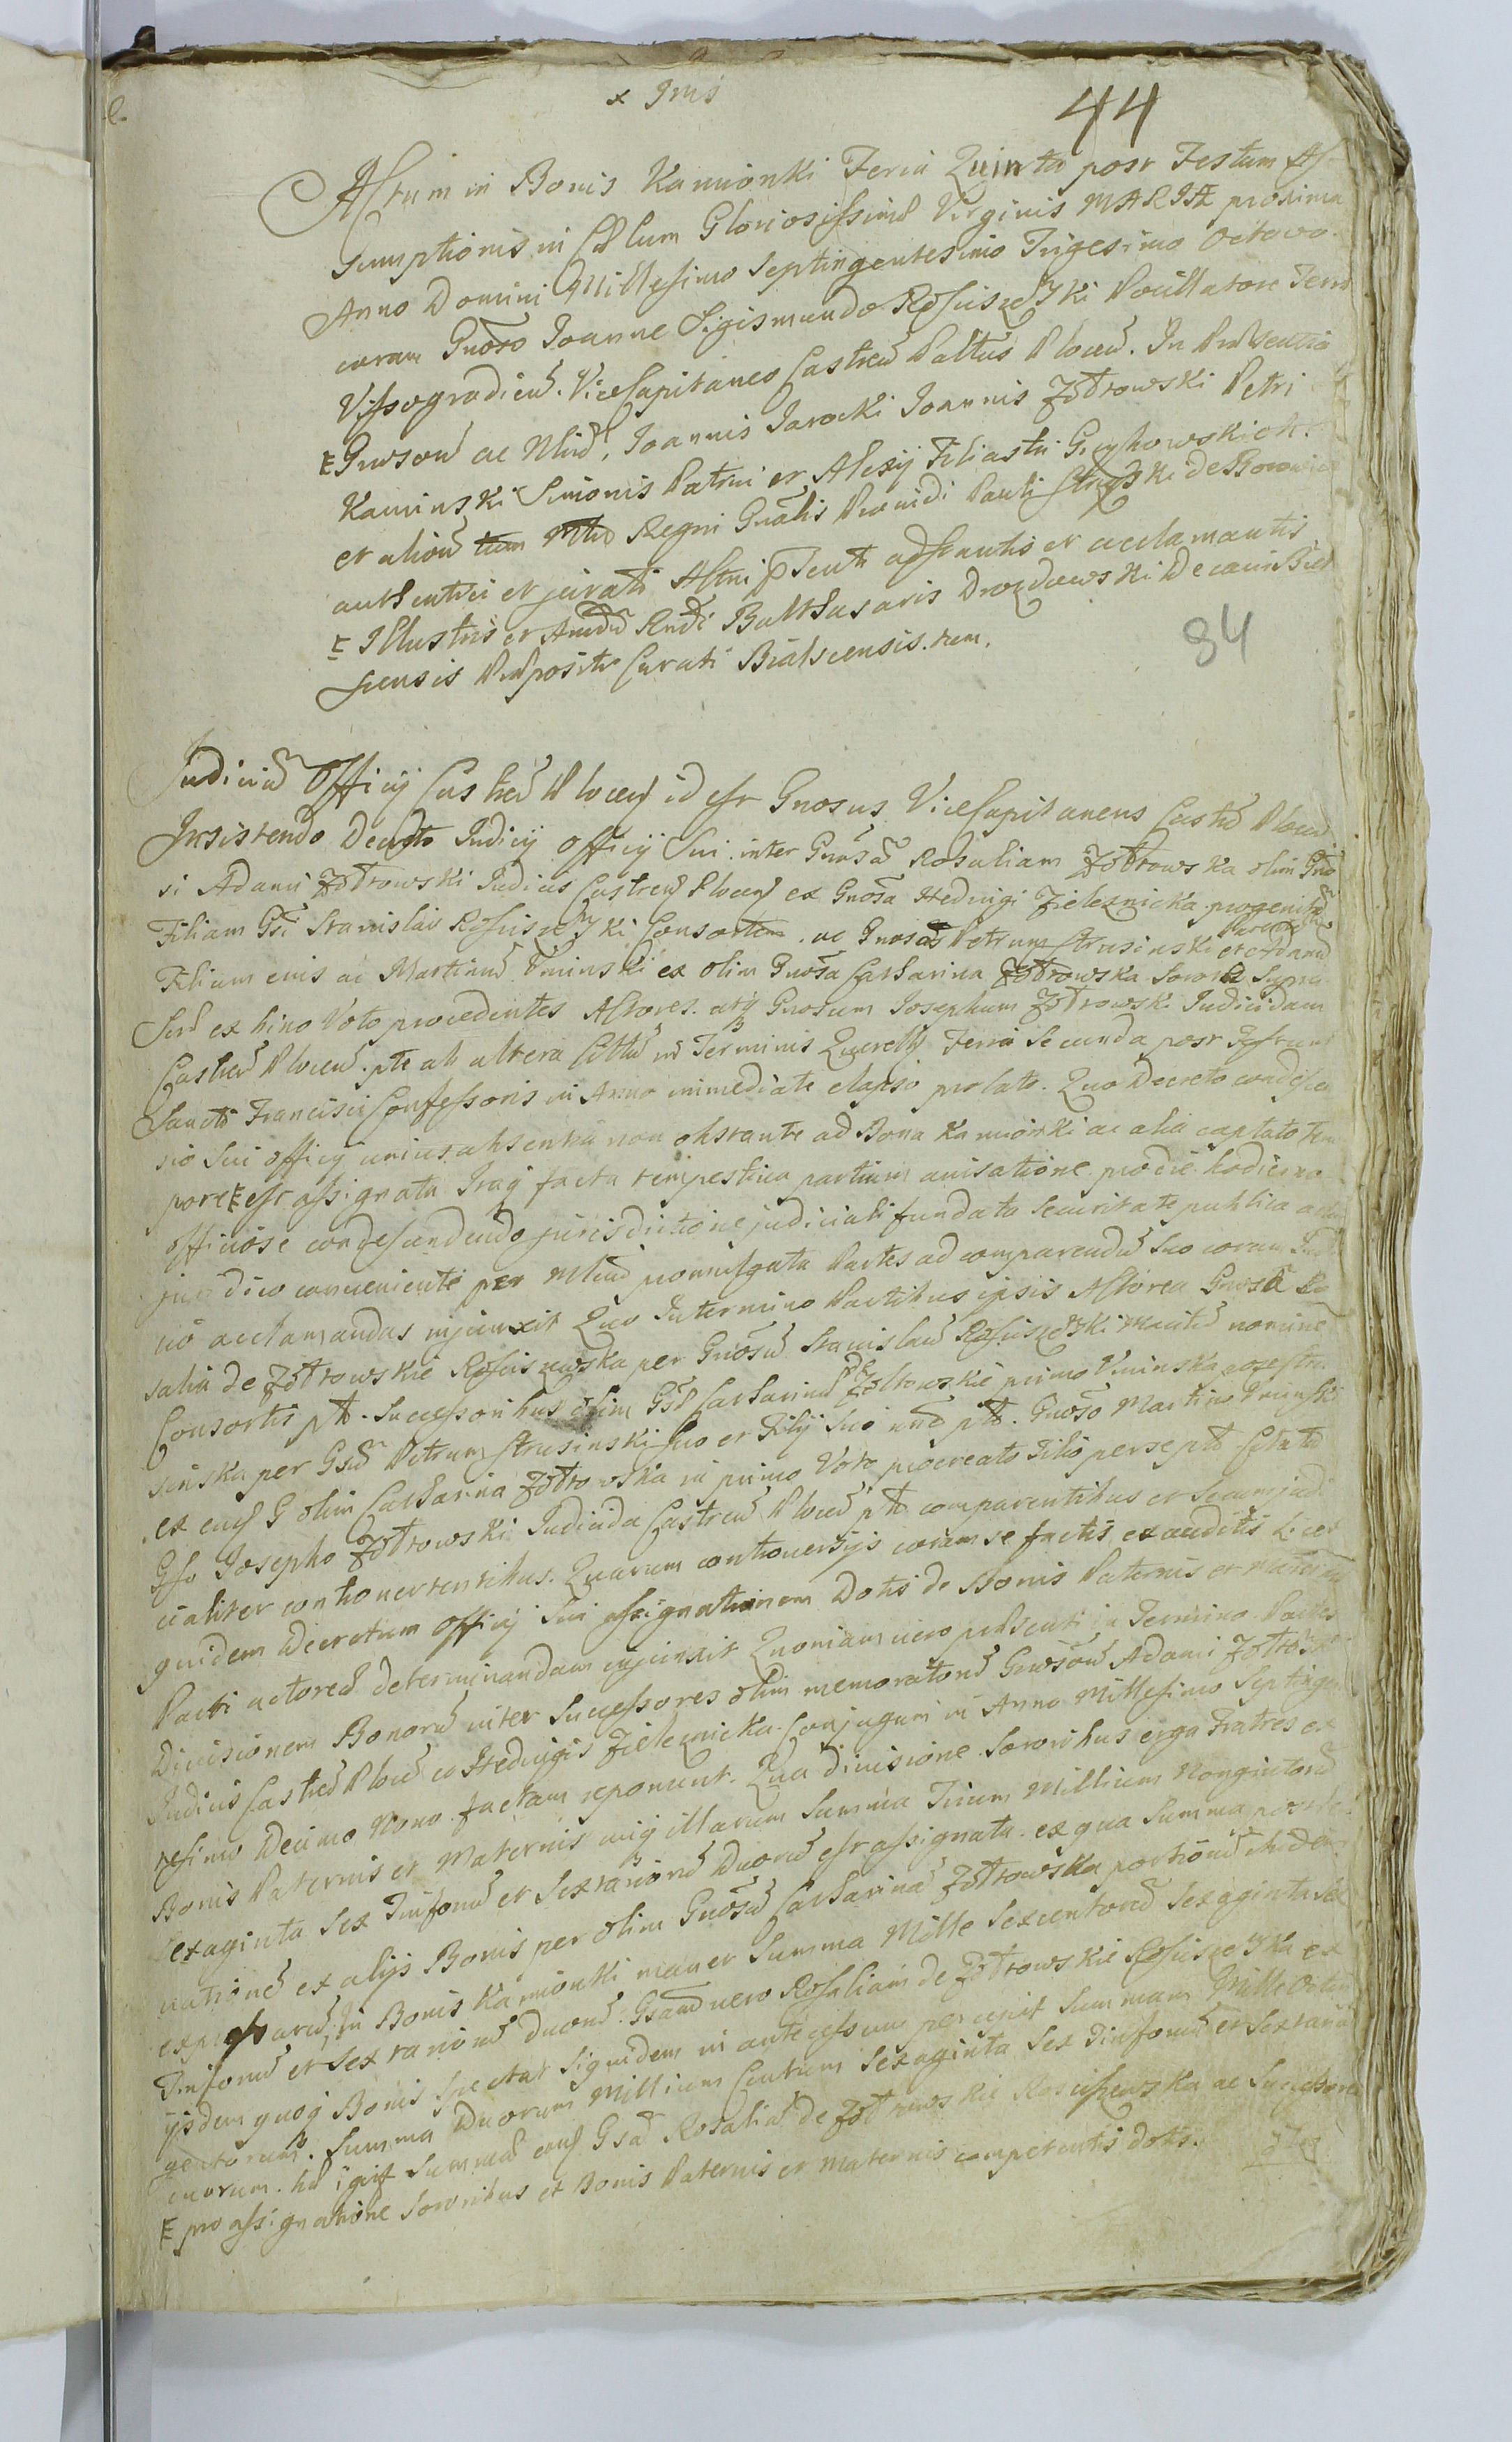 x Jms
44
Actum in Bonis Kamionki Feria Quinta post Festum As
sumptionis in Cœlum Gloriosissimæ Virginis MARIÆ proxima
Anno Domini Millesimo Septingentesimo Trigesimo Octavo
coram Gnoso Joanne Sigismundo Rosciszewski Pocillatore Terræ
Vissogradien. ViceCapitaneo Castren Plocen. In Præsentia
Gnrosoru ac Nbliu, Joannis Jarocki Joannis Zołtrowski Petri
Kaminski Simonis Patrui et Alexij Filiastri Grzybowskich
et alioru Mtro Regni Gnalis Providi Pauli de
authentici et jurati Actui pnti adstantis et acclamantis
Illustris et Amdm Rndi Balthasaris Drozdowski Decani Biel
scensis Præpositi Curati Bialscensis. rem.
84
Judiciu Officij Castren Plocen id est Gnosus ViceCapitaneus Castren Plocen
Insistendo Decreto Judicij Officij Sui inter Gnosa Rosaliam Zołtrowska olim Gno
si Adami Zołtrowski Judicis Castren Plocen ex Gnosa Hedvigi Zieleznicka progenita
Filiam Gsi Stanislai Rosciszewski Consortem ac Gnosos Petrum Strusinski
Filium eius ac Martinu Uninski ex olim Gnosa Catharina Zołtrowska Sorore Supra
Scrd ex bino Voto procedentes Actores. atq Gnosum Josephum Zołtrowski Judicidam
Castren Plocen. pte ab altera Citatu in Terminis Querelb Feria Secunda post Festum
Sancti Francisci Confessoris in Anno immediate elapso prolato. Quo Decreto condescen
sio Sui Officij unius absentia non obstante ad Bona Kamionki ac alia captato tem
pore est assignata Itaq facta tempestiva partium avisatione pro die hodierno
officiose condescendendo jurisdictione judiciali fundata Securitate publica actui
juridico conveniente per Mtru promulgata Partes ad comparendu Suo coram Judi
cio acclamandas injunxit Quo Intermino Partibus ipsis Actorea Gnrosa Ro
salia de Zołtrowskie Rosciszewska per Gnosu Stanislau Rosciszewski maritu nomine
Consortis ptt. Successoribus olim Gsæ Catharinæ de Zołtrowskie primo Uninska post Stru
sinska per Gsu Petrum Strusinski Suo et Filij Sui noe ptt. Gnoso Martino Uninski
ex ead G olim Catharina Zołtrowska in primo Voto procreato Filio per se ptt Citato
Gso Josepho Zołtrowski Judicida Castren Plocen ptt comparentibus et Secum judi
cialiter controvertentibus. Quarum controversijs coram se factis exauditis Licet
quidem Decretum Officij Sui assignationem Dotis de Bonis Paternis et Maternis
Parti actoreæ determinandam injunxit Quoniam vero præsenti in Termino Partes
Divisionem Bonoru inter Successores olim memoratoru Gnrosoru Adami Zołtrowski
Judicis Castren Plocen et Hedvigis Zieleznicka Conjugum in Anno Millesimo Septingen
tesimo Decimo Nono factam reponunt. Qua divisione Sororibus erga Fratres ex
Bonis Paternis et Maternis cuiq illarum Summa Trium Millium Nongintoru
sexaginta Sex Tinforu et Sextarioru Duoru est assignata. ex qua Summa
ratione ex alijs Bonis per olim Gnosa Catharina Zołtrowska portionu ibidem
expressaru, In Bonis Kamionki manet Summa Mille Sexcentoru Sexaginta Sex
Tinforu et Sextarioru duoru. Gsam vero Rosaliam de Zołtrowskie Rosciszewska ex
ijsdem quoq Bonis Spectat Siquidem in antecessum percepit Summam Mille Octin
gentorum. Summa Duorum Millium Centum Sexaginta Sex Tinforu et Sextarioru
duorum. Has igit Summas ead Gsa Rosalia de Zołtrowskie Rosciszewska ac Successores
pro assignatione Sororibus et Bonis Paternis et Maternis competentis dotis.